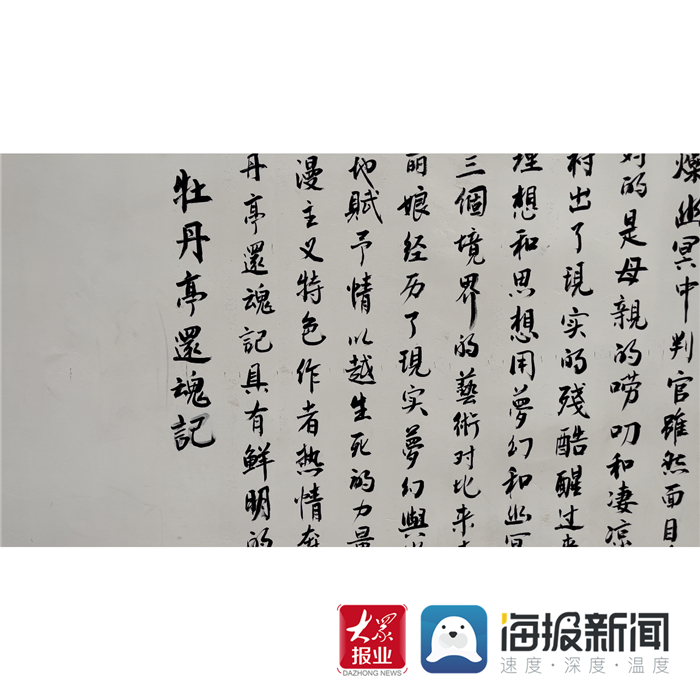 牡丹亭還魂記
丹亭還魂記具有鲜明的
漫主义特色作者热情奔
地賦予情以越生死的力量
丽娘经历了现实夢幻與
三個境界的藝術对比来
理想和思想用夢幻和幽冥
衬出了现实的殘酷醒过来
对的是母親的唠叨和凄凉
燦幽冥中判官雖然面目
大眾
报业
DAZHONG NEWS
海报新闻
速度·深度·温度